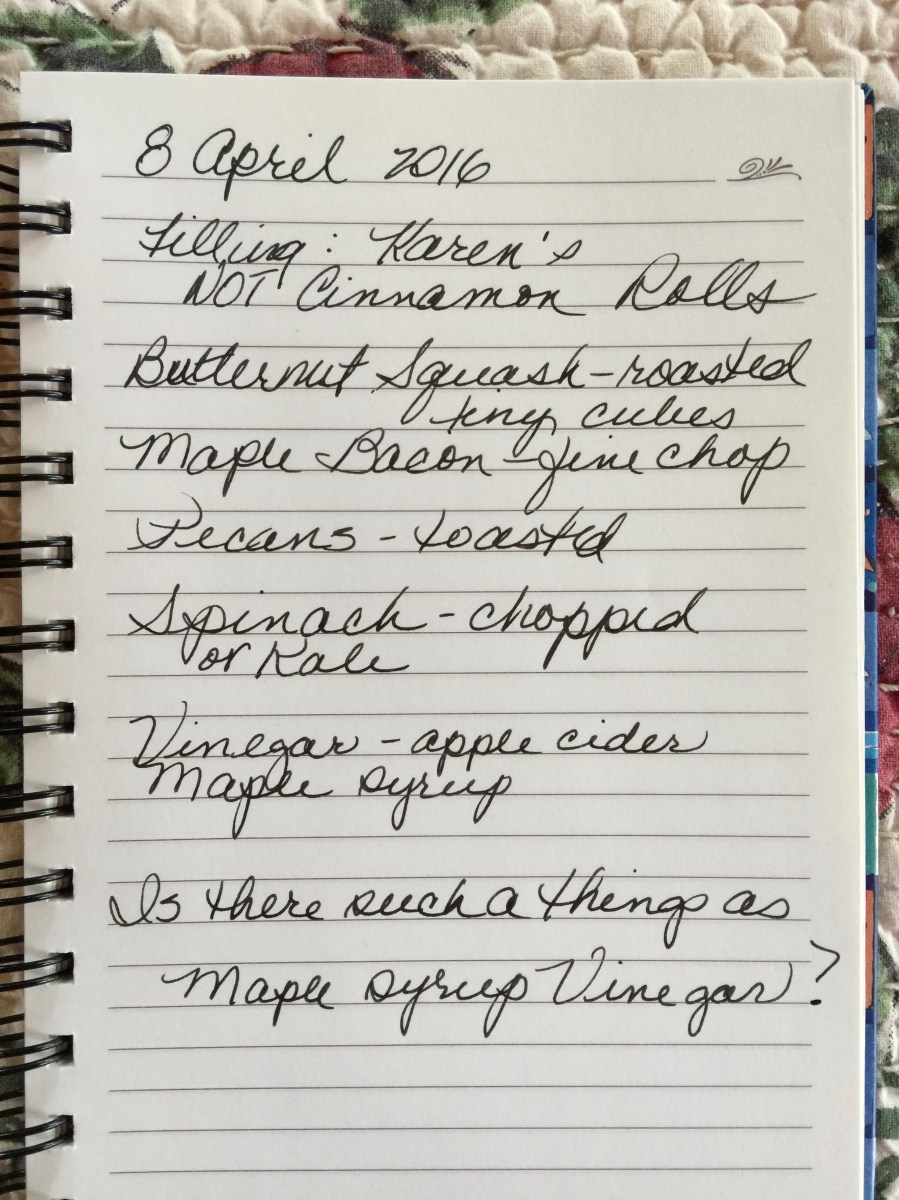 8 April 2016
Filling: Karen's
NOT Cinnamon Rolls
Butternut Squash - roasted
tiny cubes
Maple Bacon - fine chop
Pecans - toasted
Spinach - chopped
or Kale
Vinegar - apple cider
Maple syrup
Is there such a thing as
Maple syrup Vinegar?